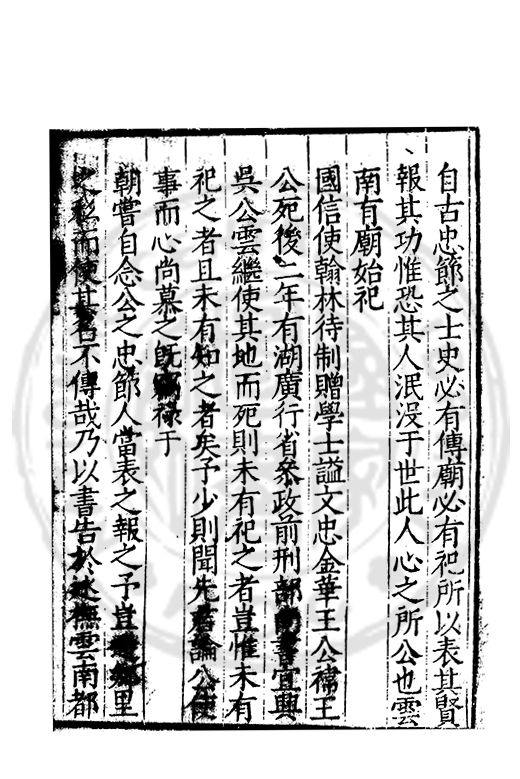 自古忠節之士史必有傳廟必有祀所以表其賢
報其功惟恐其人泯沒于世此人心之所公也雲
南有廟始祀
國信使翰林待制贈學士謚文忠金華王公褘王
公死後二年有湖廣行省叅政前刑部尚書宜興
吳公雲繼使其地而死則未有祀之者豈惟未有
祀之者且未有知之者矣予少則聞先君論公使
事而心尚慕之既 祿于
朝嘗自念公之忠節人當表之報之予豈 鄉里
之私而使其名不傳哉乃以書告於 撫雲南都